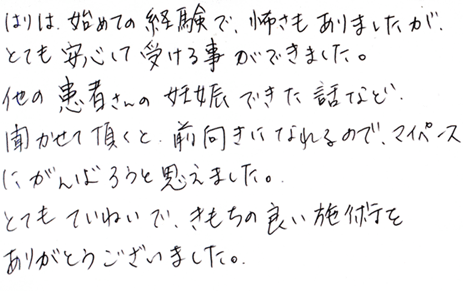 はりは、始めての経験で、怖さもありましたが、
とても安心して受ける事ができました。
他の患者さんの妊娠できた話など、
聞かせて頂くと、前向きになれるので、マイペース
にがんばろうと思えました。
とてもていねいで、きもちの良い施術を
ありがとうございました。